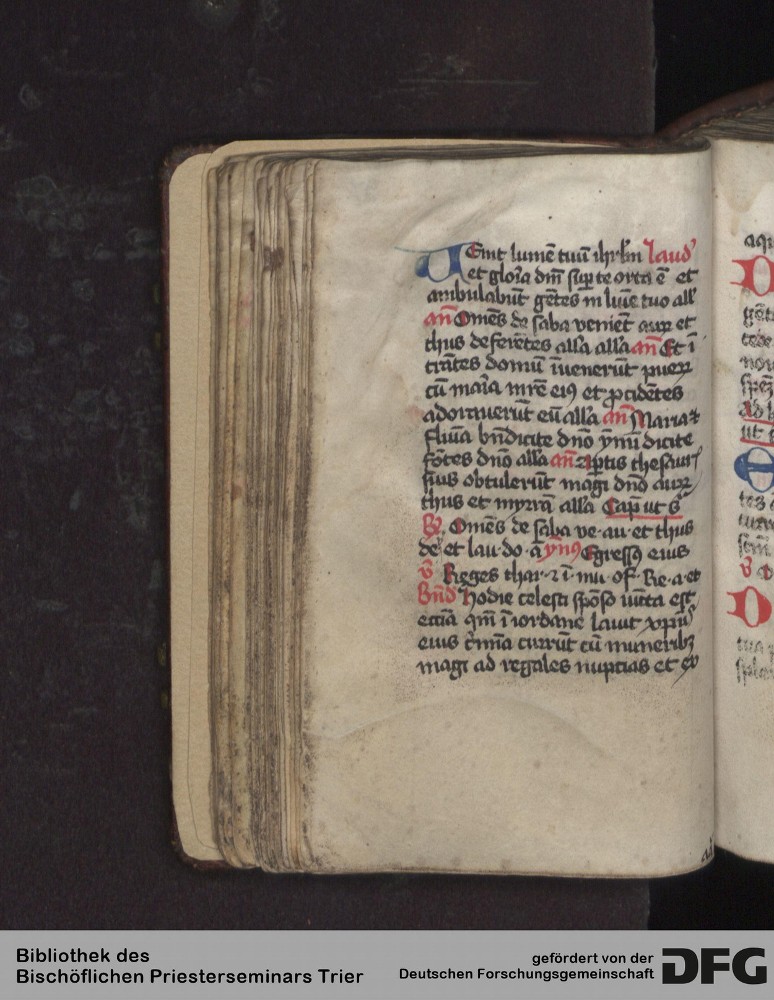 Enit lumē tuū ihrlm laud'
et glo͞ia dn̄i sup te orta ē et
ambulabūt gētes in lum̄e tuo all'
an̄ Om̄es de saba veniēt auꝝ et
thus deferētes alla alla an̄ Et ī
trātes domū īvenerūt pueꝝ
cū ma͞ia mr̄e eiꝯ et ꝓcidētes
adoraverūt eū alla an̄ Maria ⁊
flu͞ia bn̄dicite dn̄o ymn̄ū dicite
fōtes dn̄o alla an̄ aꝑtis thesaur'
suis obtulerūt magi dn̄o auꝝ
thus et myrrā alla Cap̄ ut s̄
℟ Om̄es de saba ve·au·et thus
de et lau·do·a ymꝯ Egressꝯ eius
v̄ Reges thar·⁊ ī·mu·of·Re·a·et
Bn̄d Hodie celesti spōso iūcta est
ecc͞ia qm̄ ī iordane lavit xpūs
eius c͞mīa currūt cū muneribꝫ
magi ad regales nuptias et ex
Bibliothek des
Bischöflichen Priesterseminars Trier
gefördert von der
Deutschen Forschungsgemeinschaft
DFG